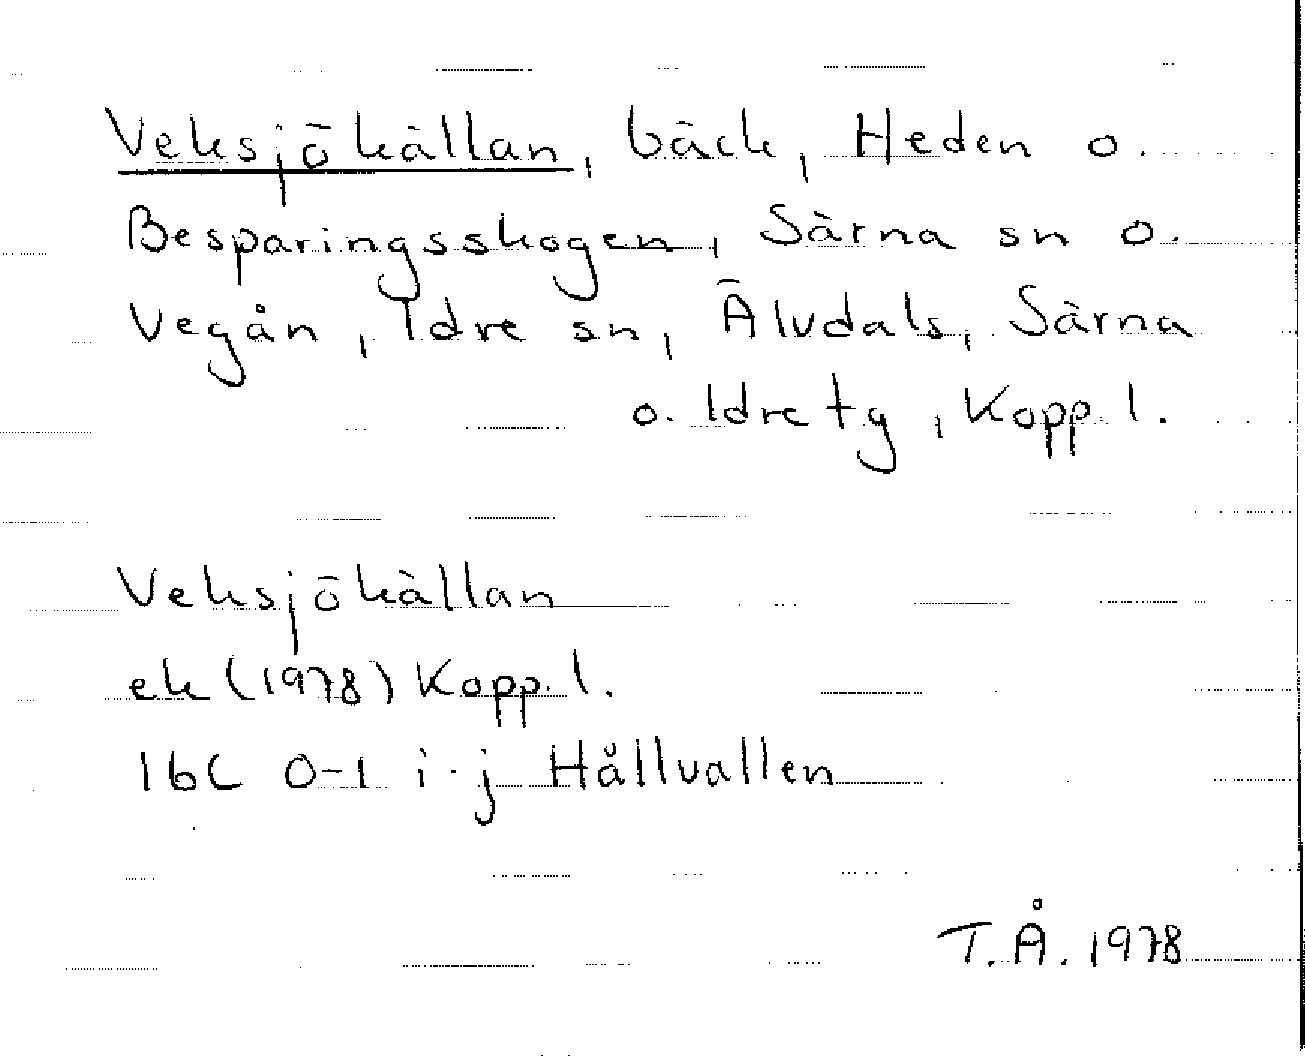 Veksjökällan, bäck, Heden o.
Besparingsskogen, Särna sn o.
Vegån, Idre sn, Älvdals, Särna
o. Idre tg, Kopp. l.
Veksjökällan
ek (1978) Kopp. l.
16C 0-1 i-j Hållvallen
T.Å. 1978